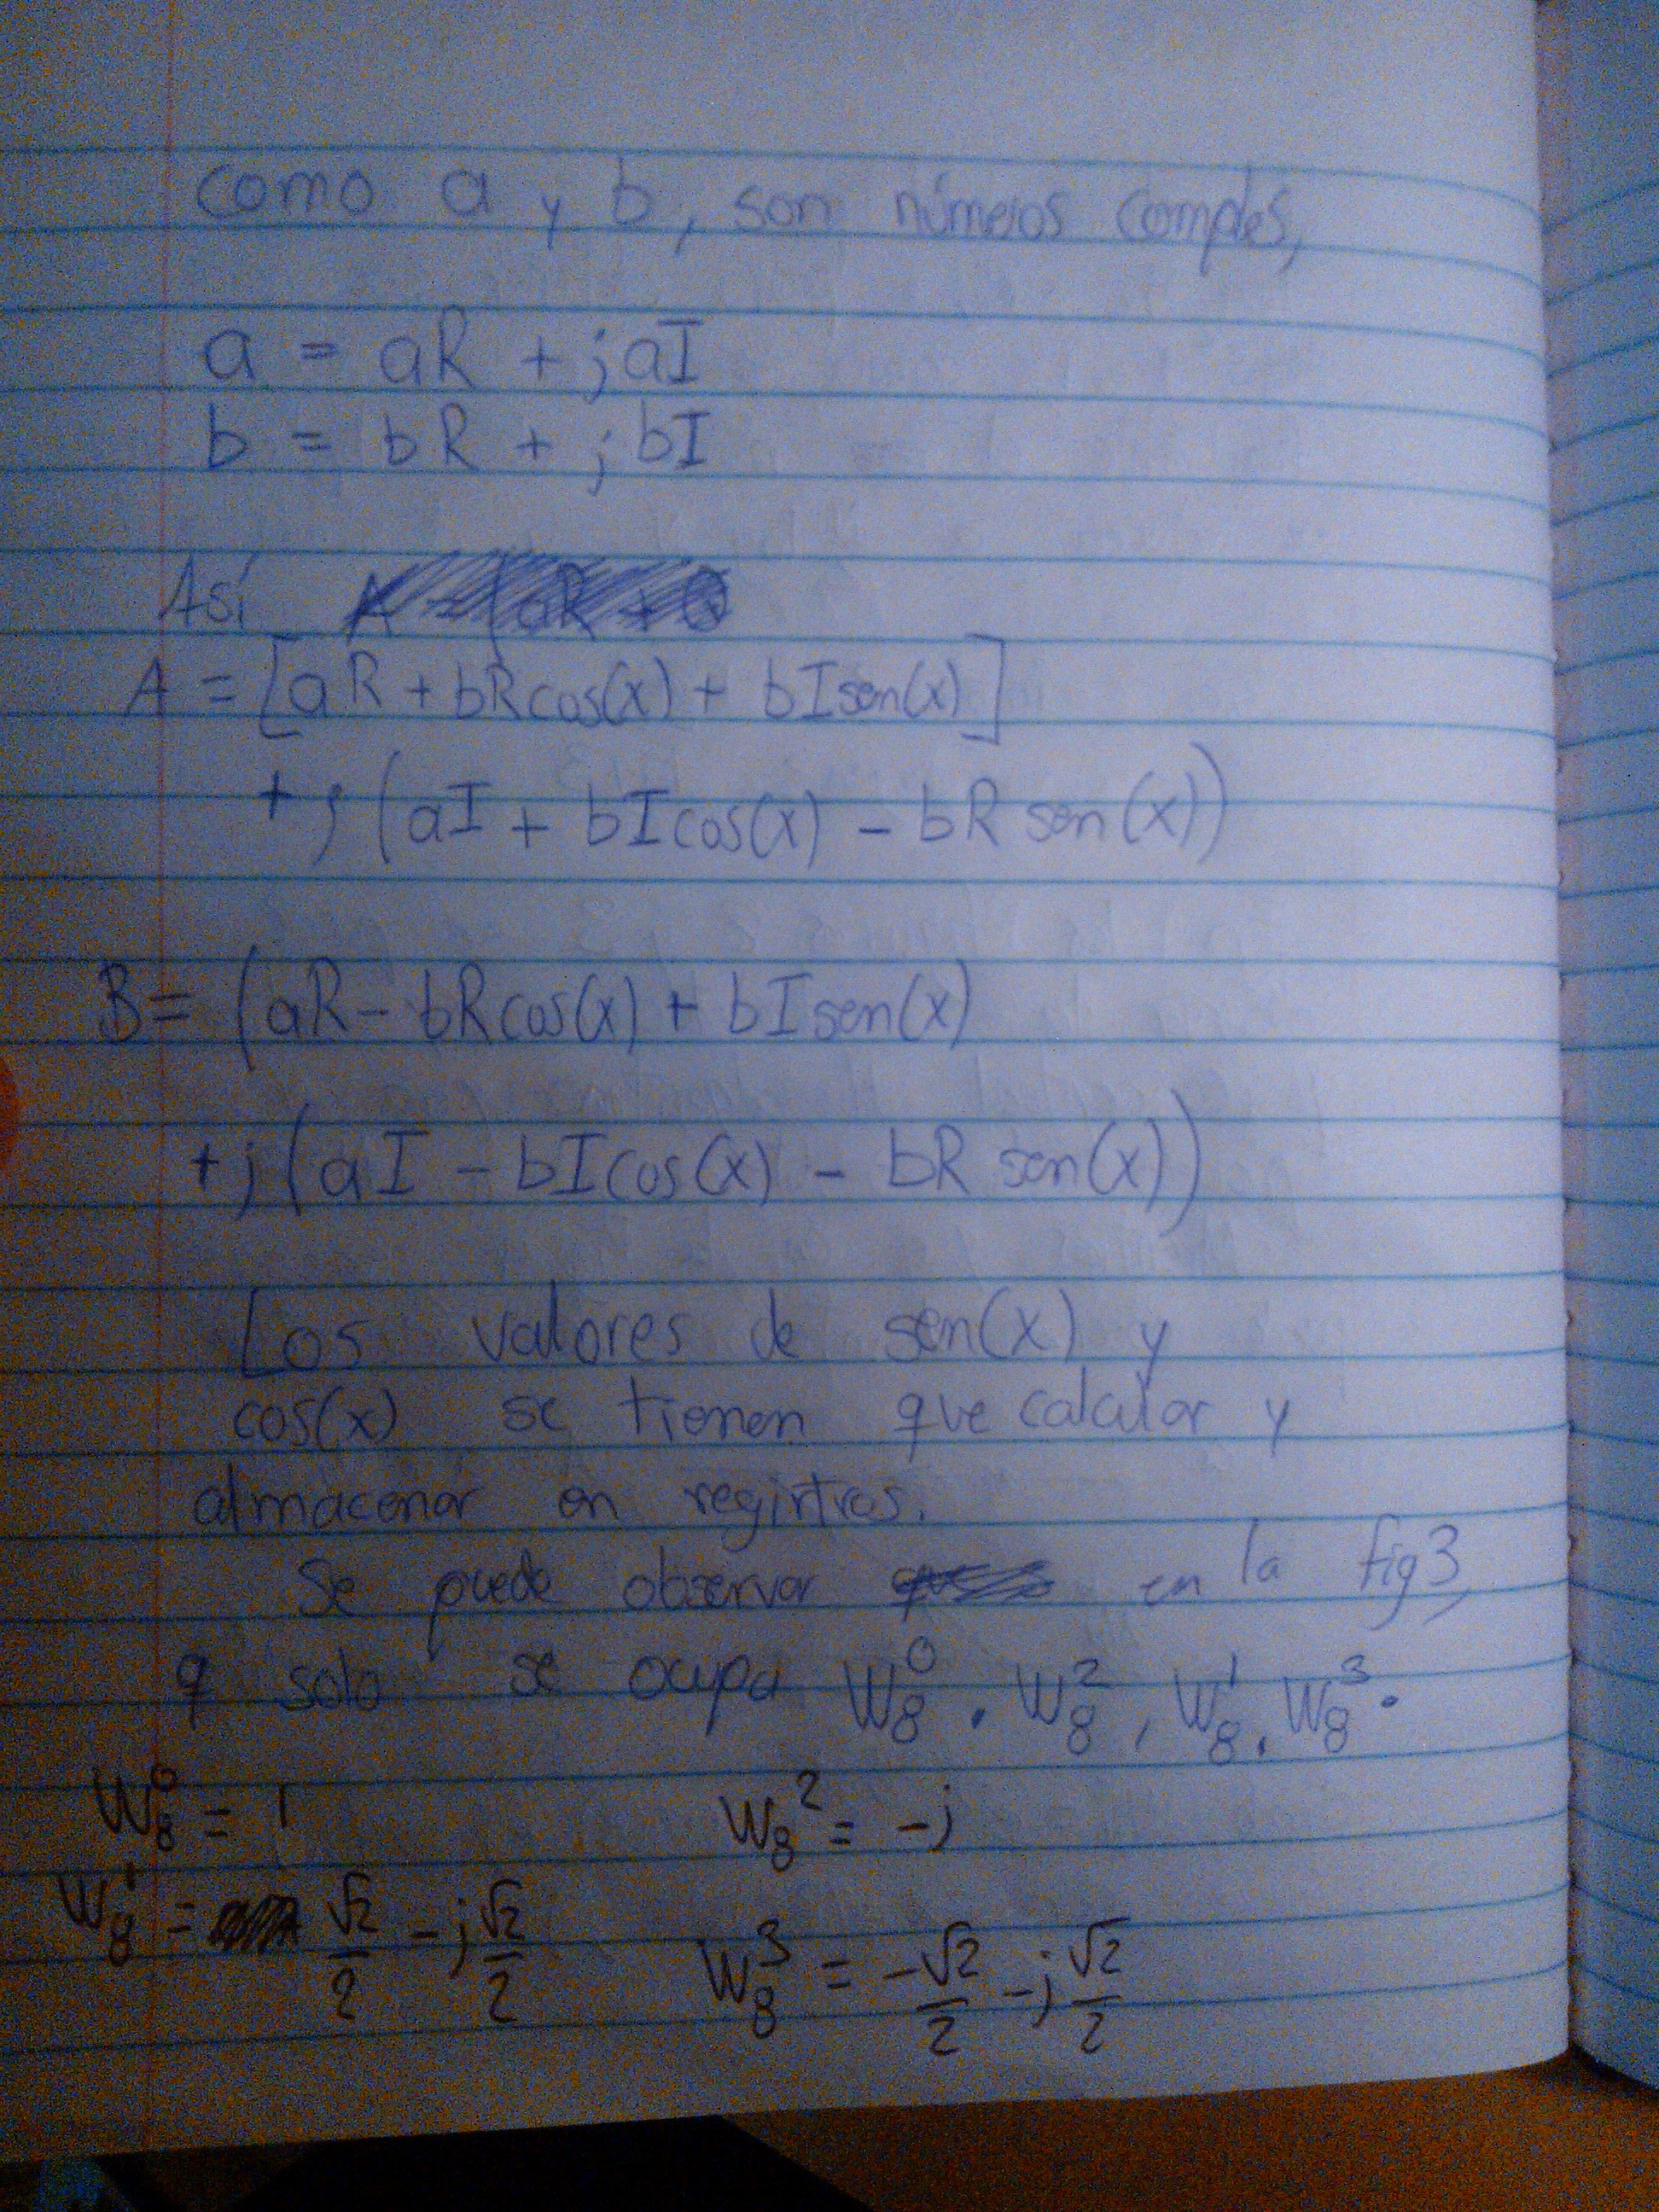 como a y b, son números comples,
a = aR + jaI
b = bR + jbI
Así
A = [aR + bRcos(x) + bIsen(x)]
+ j(aI + bIcos(x) - bR sen(x))
B = (aR - bRcos(x) + bIsen(x)
+ j(aI - bIcos(x) - bR sen(x))
Los valores de sen(x) y
cos(x) se tienen que calcular y
almacenar en registros.
Se puede observar en la fig 3,
q solo se ocupa W₈⁰, W₈², W₈¹, W₈³.
W₈⁰ = 1 W₈² = -j
W₈¹ = √2/2 - j√2/2 W₈³ = -√2/2 - j√2/2